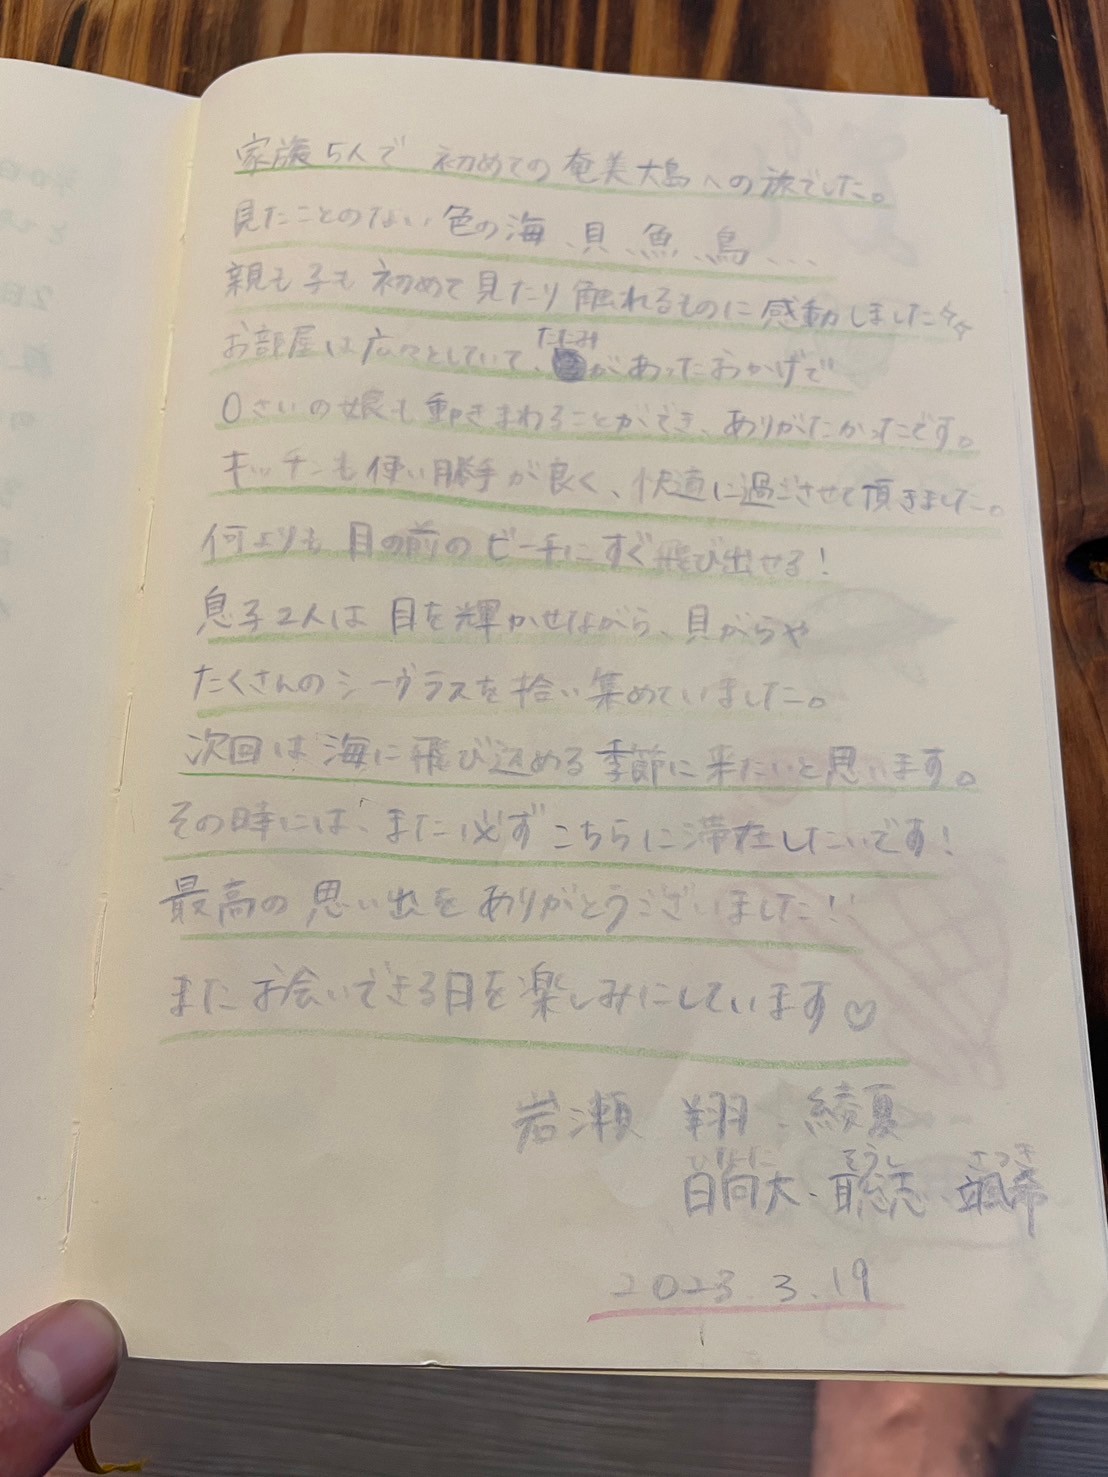 家族5人で 初めての奄美大島への旅でした。
見たことのない色の海、貝、魚、鳥...
親も子も初めて見たり触れるものに感動しました
お部屋は広々としていて、たたみがあったおかげで
0さいの娘も動きまわることができ、ありがたかったです。
キッチンも使い勝手が良く、快適に過ごさせて頂きました。
何よりも 目の前のビーチにすぐ飛び出せる!
息子2人は 目を輝かせながら、貝がらや
たくさんのシーグラスを拾い集めていました。
次回は海に飛び込める季節に来たいと思います。
その時には、また必ずこちらに滞在したいです!
最高の思い出をありがとうございました!!
またお会いできる日を楽しみにしています♡
岩瀬 翔・綾夏
日向大・聡志・颯希
そうし さつき
2023.3.19